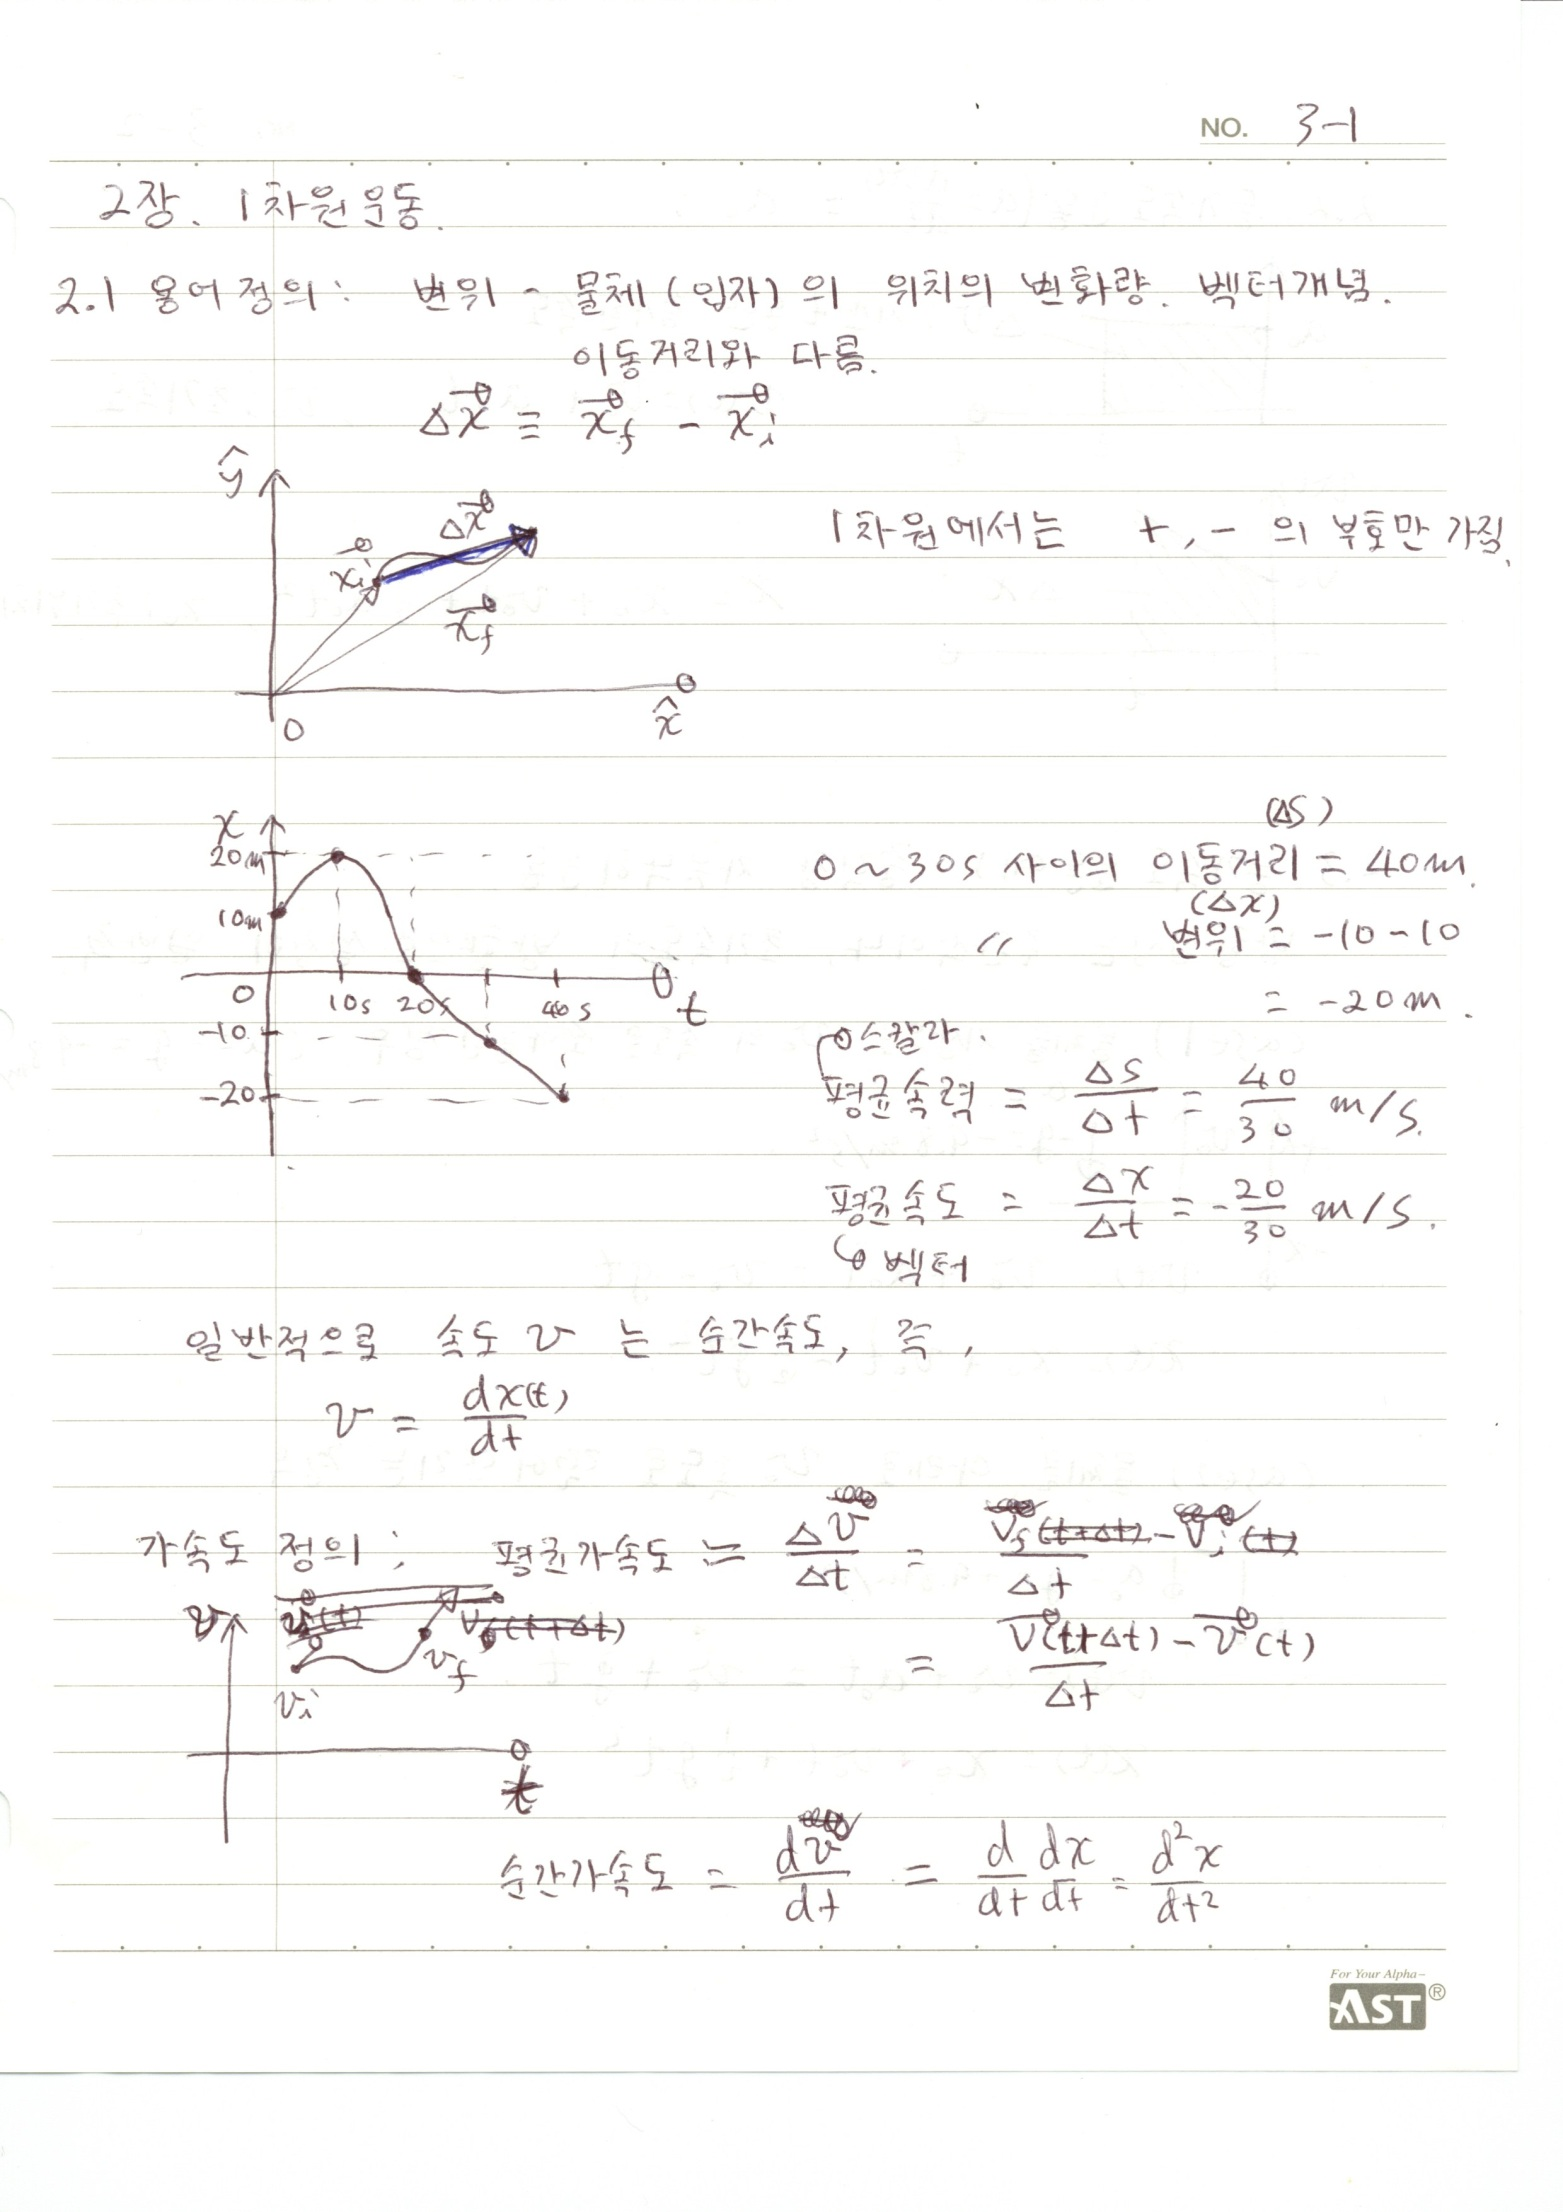 NO. 3-1
2장. 1차원 운동.
2.1 용어정의: 변위 - 물체(입자)의 위치의 변화량. 벡터개념.
이동거리와 다름.
Δx⃗ ≡ x⃗f - x⃗i
ŷ
Δx⃗
x⃗i
x⃗f
0
x̂
1차원에서는 +, - 의 부호만 가짐.
x
20m
10m
0
10s 20s 40s
t
-10
-20
(ΔS)
0 ~ 30s 사이의 이동거리 = 40m.
(Δx)
〃 변위 = -10-10
= -20m.
스칼라.
평균속력 = ΔS/Δt = 40/30 m/s.
평균속도 = Δx/Δt = -20/30 m/s.
벡터
일반적으로 속도 v 는 순간속도, 즉,
v = dx(t)/dt
가속도 정의; 평균가속도 = Δv/Δt = (Vf - Vi)/Δt
v
vi
vf
t
= (v⃗(t+Δt) - v⃗(t))/Δt
순간가속도 = dv/dt = d/dt dx/dt = d²x/dt²
For Your Alpha-
AST®